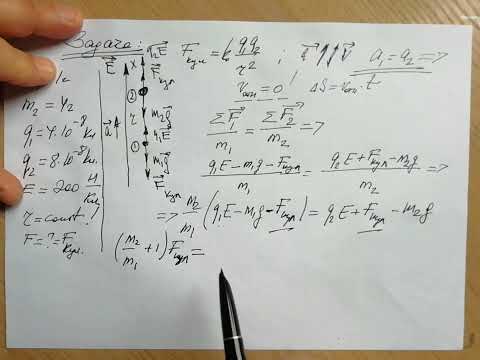 Задача:
m₂ = 4г
q₁ = 4·10⁻⁸ Кл
q₂ = 8·10⁻⁸ Кл.
E = 200 Н/Кл
r = const!
F = ? = F кул.
E⃗
a⃗
x
q₂E⃗
F⃗кул
②
r
m₂g⃗
q₁E⃗
①
m₁g⃗
F⃗кул
Fкул = k q₁q₂/r² ; a⃗ ↑↑ V⃗ a₁ = a₂ =>
Vотн = 0 ! ΔS = Vотн · t
ΣF⃗₁/m₁ = ΣF⃗₂/m₂ =>
(q₁E − m₁g − Fкул)/m₁ = (q₂E + Fкул − m₂g)/m₂ =>
=> m₂/m₁ (q₁E − m₁g − Fкул) = q₂E + Fкул − m₂g
(m₂/m₁ + 1) Fкул =